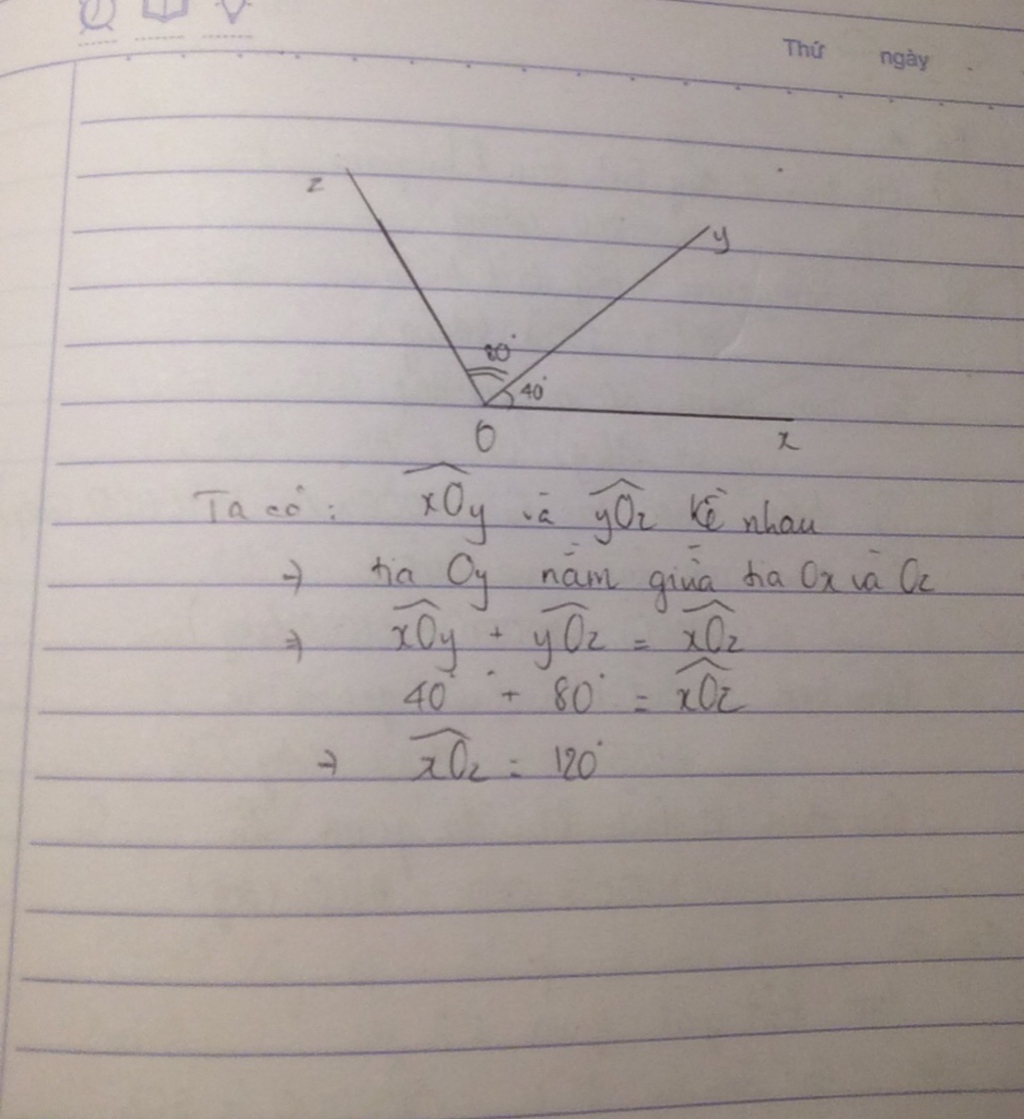 Thứ ngày
z
y
80°
40°
O
x
Ta có: xOy và yOz kề nhau
→ tia Oy nằm giữa tia Ox và Oz
⇒ xOy + yOz = xOz
40° + 80° = xOz
→ xOz = 120°